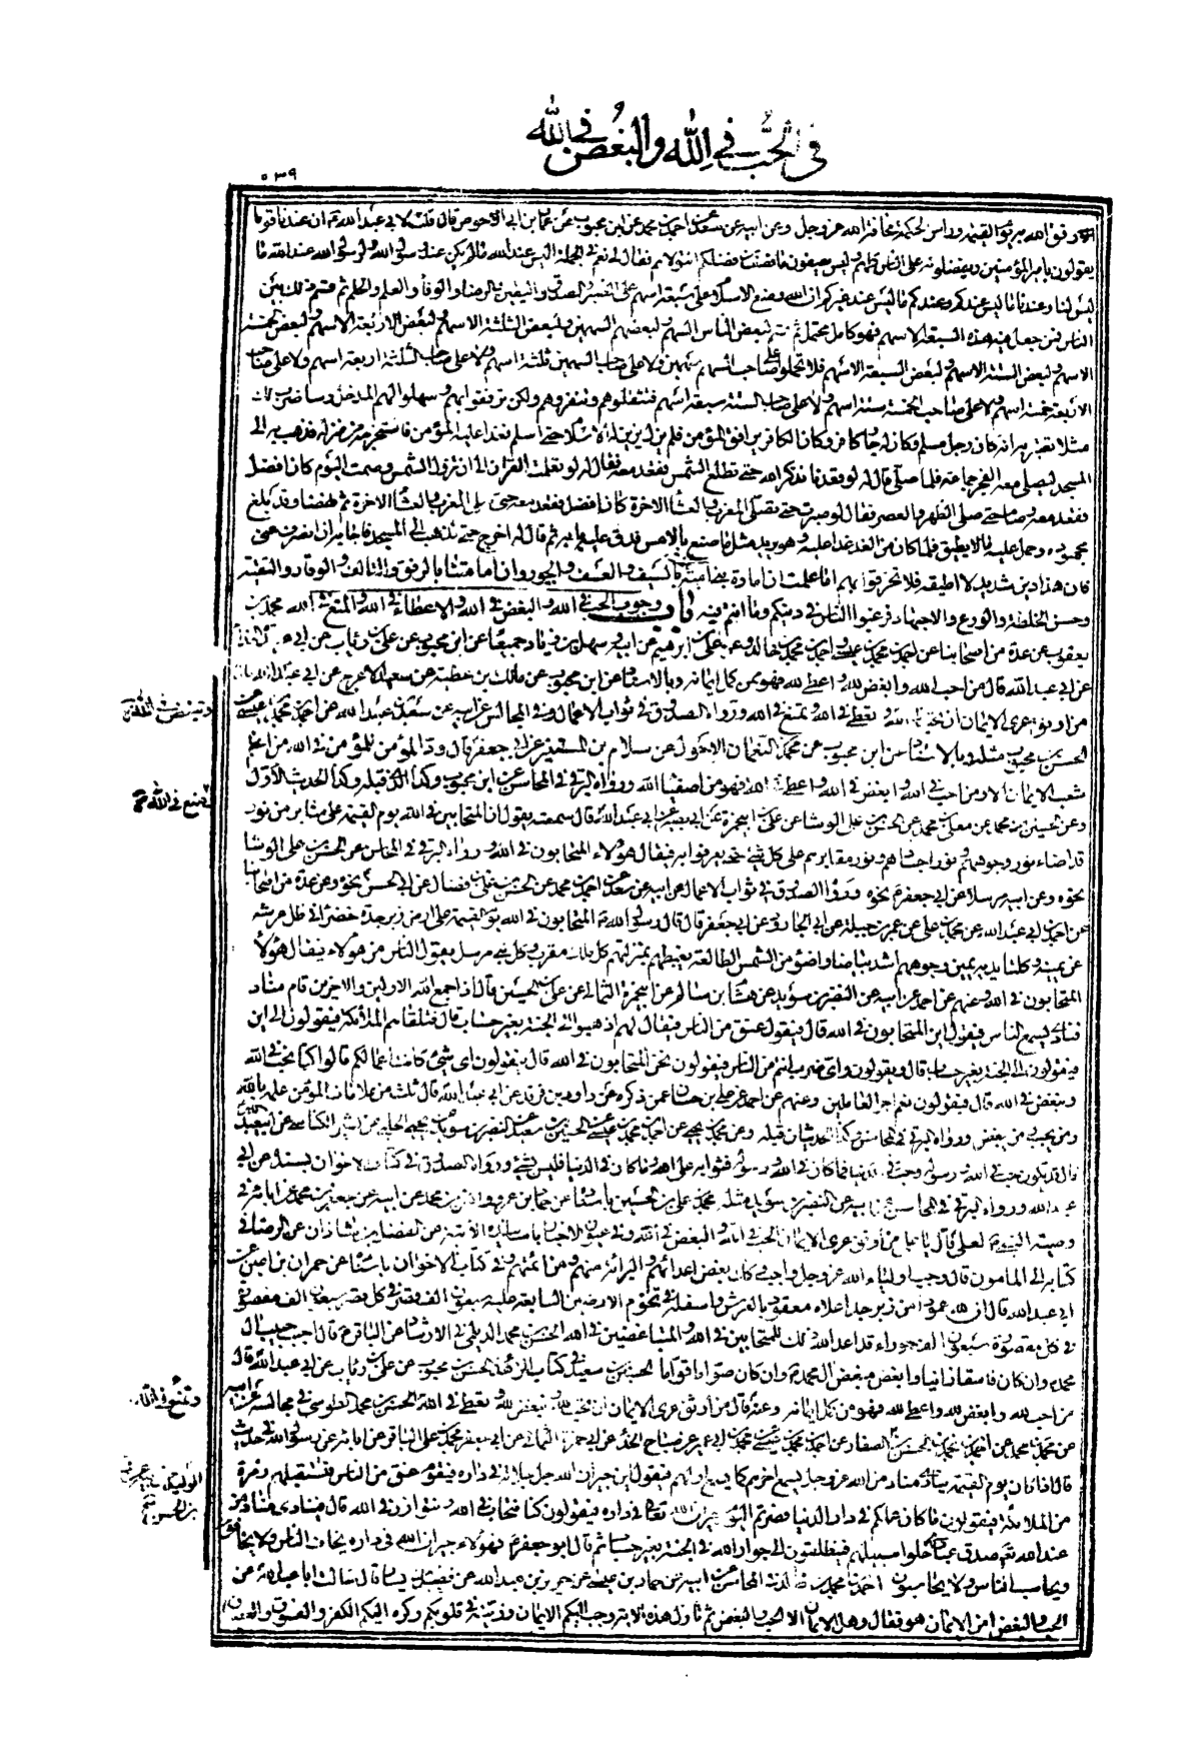 في الحُبّ في اللهِ والبُغضِ في الله
٥٣٩
رفق الله به يوم القيمة وراس الحكمة مخافة الله عز وجل وعن ابيه عن سعد عن احمد بن محمد عن ابن محبوب عن عمار بن ابي الاحوص قال قلت لابي عبد الله ع ان عندنا قوما
يقولون بامير المؤمنين ويفضلونه على الناس كلهم وليس يصفون ما نصف من فضلكم انتولاهم فقال لي نعم في الجملة اليس عند الله ما لم يكن عند رسول الله ولرسول الله عند الله ما
ليس لنا وعندنا ما ليس عندكم وعندكم ما ليس عند غيركم ان الله وضع الاسلام على سبعة اسهم على الصبر والصدق واليقين والرضا والوفاء والعلم والحلم ثم قسم ذلك بين
الناس فمن جعل فيه هذه السبعة الاسهم فهو كامل محتمل ثم قسم لبعض الناس السهم ولبعضهم السهمين ولبعض الثلثة الاسهم ولبعض الاربعة الاسهم ولبعض الخمسة
الاسهم ولبعض الستة الاسهم ولبعض السبعة الاسهم فلا تحملوا على صاحب السهم سهمين ولا على صاحب السهمين ثلثة اسهم ولا على صاحب الثلثة اربعة اسهم ولا على صاحب
الاربعة خمسة اسهم ولا على صاحب الخمسة ستة اسهم ولا على صاحب الستة سبعة اسهم فتثقلوهم وتنفروهم ولكن ترفقوا بهم وسهلوا لهم المدخل وساضرب لك
مثلا تعتبر به انه كان رجل مسلم وكان له جار كافر وكان الكافر يرافق المؤمن فلم يزل يزين له الاسلام حتى اسلم فغدا عليه المؤمن فاستخرجه من منزله فذهب به الى
المسجد ليصلي معه الفجر جماعة فلما صلى قال له لو قعدنا نذكر الله حتى تطلع الشمس فقعد معه فقال له لو تعلمت القران الى ان تزول الشمس وصمت اليوم كان افضل
فقعد معه وصام حتى صلى الظهر والعصر فقال لو صبرت حتى تصلي المغرب والعشاء الاخرة كان افضل فقعد معه حتى صلى المغرب والعشاء الاخرة ثم نهضا وقد بلغ
مجهوده وحمل عليه ما لا يطيق فلما كان من الغد غدا عليه وهو يريد مثل ما صنع بالامس فدق عليه بابه ثم قال له اخرج حتى نذهب الى المسجد فاجابه ان انصرف عني
فان هذا دين شديد لا اطيقه فلا تخرقوا بهم اما علمت ان امارة بني امية كانت بالسيف والعسف والجور وان امامتنا بالرفق والتالف والوقار والتقية
وحسن الخلطة والورع والاجتهاد فرغبوا الناس في دينكم وفيما انتم فيه باب وجوب الحب في الله والبغض في الله والاعطاء في الله والمنع في الله محمد بن
يعقوب عن عدة من اصحابنا عن احمد بن محمد بن عيسى واحمد بن محمد بن خالد وعن علي بن ابرهيم عن ابيه وسهل بن زياد جميعا عن ابن محبوب عن علي بن رئاب عن ابي عبيدة الحذاء
عن ابي عبد الله قال من احب لله وابغض لله واعطى لله فهو ممن كمل ايمانه وبالاسناد عن ابن محبوب عن مالك بن عطية عن سعيد الاعرج عن ابي عبد الله قال
من اوثق عرى الايمان ان تحب في الله وتبغض في الله وتعطي في الله وتمنع في الله ورواه الصدوق في ثواب الاعمال وفي المجالس عن ابيه عن سعد بن عبد الله عن احمد بن محمد بن عيسى عن
الحسن بن محبوب مثله وبالاسناد عن ابن محبوب عن محمد بن النعمان الاحول عن سلام بن المستنير عن ابي جعفر قال ود المؤمن للمؤمن في الله من اعظم
شعب الايمان الا ومن احب في الله وابغض في الله واعطى في الله فهو من اصفياء الله ورواه البرقي في المحاسن عن ابن محبوب وكذا الذي قبله وكذا الحديث الاول
وعن الحسين بن محمد عن معلى بن محمد عن الحسن بن علي الوشا عن علي بن ابي حمزة عن ابي بصير عن ابي عبد الله قال سمعته يقول ان المتحابين في الله يوم القيمة على منابر من نور
قد اضاء نور وجوههم ونور اجسادهم ونور منابرهم على كل شيء حتى يعرفوا به فيقال هؤلاء المتحابون في الله ورواه البرقي في المحاسن عن الحسن بن علي الوشا
نحوه وعن ابيه مرسلا عن ابي جعفر ع نحوه ورواه الصدوق في ثواب الاعمال عن ابيه عن سعد عن احمد بن محمد عن الحسن بن علي بن فضال عن ابي الحسن نحوه وعن عدة من اصحابنا
عن احمد بن ابي عبد الله عن محمد بن علي عن عمر بن جبلة عن ابي الجارود عن ابي جعفر قال قال رسول الله ص المتحابون في الله يوم القيمة على ارض زبرجدة خضراء في ظل عرشه
عن يمينه وكلتا يديه يمين وجوههم اشد بياضا واضوء من الشمس الطالعة يغبطهم بمنزلتهم كل ملك مقرب وكل نبي مرسل يقول الناس من هؤلاء فيقال هؤلاء
المتحابون في الله وعنهم عن احمد عن ابيه عن النضر بن سويد عن هشام بن سالم عن ابي حمزة الثمالي عن علي بن الحسين قال اذا جمع الله الاولين والاخرين قام مناد
فنادى يسمع الناس فيقول اين المتحابون في الله قال فيقوم عنق من الناس فيقال لهم اذهبوا الى الجنة بغير حساب قال فتلقاهم الملائكة فيقولون الى اين
فيقولون الى الجنة بغير حساب قال ويقولون واي ضرب انتم من الناس فيقولون نحن المتحابون في الله قال فيقولون اي شيء كانت اعمالكم قالوا كنا نحب في الله
ونبغض في الله قال فيقولون نعم اجر العاملين وعنهم عن احمد عن علي بن حسان عمن ذكره عن داود بن فرقد عن ابي عبد الله قال ثلث من علامات المؤمن علمه بالله
ومن يحب ومن يبغض ورواه البرقي في المحاسن وكذا الحديثان قبله وعن محمد بن يحيى عن احمد بن محمد بن عيسى عن الحسين بن سعيد عن النضر بن سويد عن يحيى الحلبي عن بشير الكناسي عن ابي عبد الله
قال قد يكون حب في الله ورسوله وحب في الدنيا فما كان في الله ورسوله فثوابه على الله وما كان في الدنيا فليس بشيء ورواه الصدوق في كتاب الاخوان بسنده عن ابي
عبد الله ورواه البرقي في المحاسن عن ابيه عن النضر بن سويد مثله محمد بن علي بن الحسين باسناده عن حماد بن عمرو وانس بن محمد عن ابيه عن جعفر بن محمد عن ابائه في
وصية النبي ص لعلي قال يا علي من اوثق عرى الايمان الحب في الله والبغض في الله وفي عيون الاخبار باسانيده الاتية عن الفضل بن شاذان عن الرضا في
كتابه الى المامون قال وحب اولياء الله عز وجل واجب وكذلك بغض اعدائهم والبرائة منهم ومن ائمتهم وفي كتاب الاخوان باسناده عن حمران بن اعين عن
ابي عبد الله قال ان لله عمودا من زبرجد اعلاه معقود بالعرش واسفله في تخوم الارضين السابعة عليه سبعون الف قصر في كل قصر سبعون الف مقصورة
في كل مقصورة سبعون الف حوراء قد اعد الله ذلك للمتحابين في الله والمتباغضين في الله الحسن بن محمد الديلمي في الارشاد عن الباقر ع قال احبب حبيب ال
محمد وان كان فاسقا زانيا وابغض مبغض ال محمد وان كان صواما قواما الحسين بن سعيد في كتاب الزهد عن الحسن بن محبوب عن علي بن رئاب عن ابي عبد الله قال
من احب لله وابغض لله واعطى لله فهو ممن كمل ايمانه وعنه قال من اوثق عرى الايمان ان تحب لله وتبغض لله وتعطي في الله الحسن بن محمد الطوسي في مجالسه عن ابيه
عن محمد بن محمد عن احمد بن محمد بن الحسن عن الصفار عن احمد بن محمد بن عيسى عن محمد بن ابي عمير عن صباح الحذاء عن ابي حمزة الثمالي عن ابي جعفر محمد بن علي الباقر عن ابائه عن رسول الله في حديث
قال اذا كان يوم القيمة ينادي مناد من الله عز وجل يسمع اخرهم كما يسمع اولهم فيقول اين جيران الله جل جلاله في داره فيقوم عنق من الناس فتستقبلهم زمرة
من الملائكة فيقولون ما كان عملكم في دار الدنيا فصرتم اليوم جيران الله تعالى في داره فيقولون كنا نتحاب في الله ونتوازر في الله قال فينادي مناد من
عند الله صدق عبادي خلوا سبيلهم فينطلقون الى جوار الله في الجنة بغير حساب ثم قال ابو جعفر ع فهؤلاء جيران الله في داره يخاف الناس ولا يخافون
ويحاسب الناس ولا يحاسبون احمد بن محمد بن خالد في المحاسن عن ابيه عن حماد بن عيسى عن حريز بن عبد الله عن فضيل بن يسار قال سالت ابا عبد الله عن
الحب والبغض امن الايمان هو فقال وهل الايمان الا الحب والبغض ثم تاول هذه الاية وحبب اليكم الايمان وزينه في قلوبكم وكره اليكم الكفر والفسوق والعصيان
وتبغض في الله
وتمنع في الله
وتمنع في الله